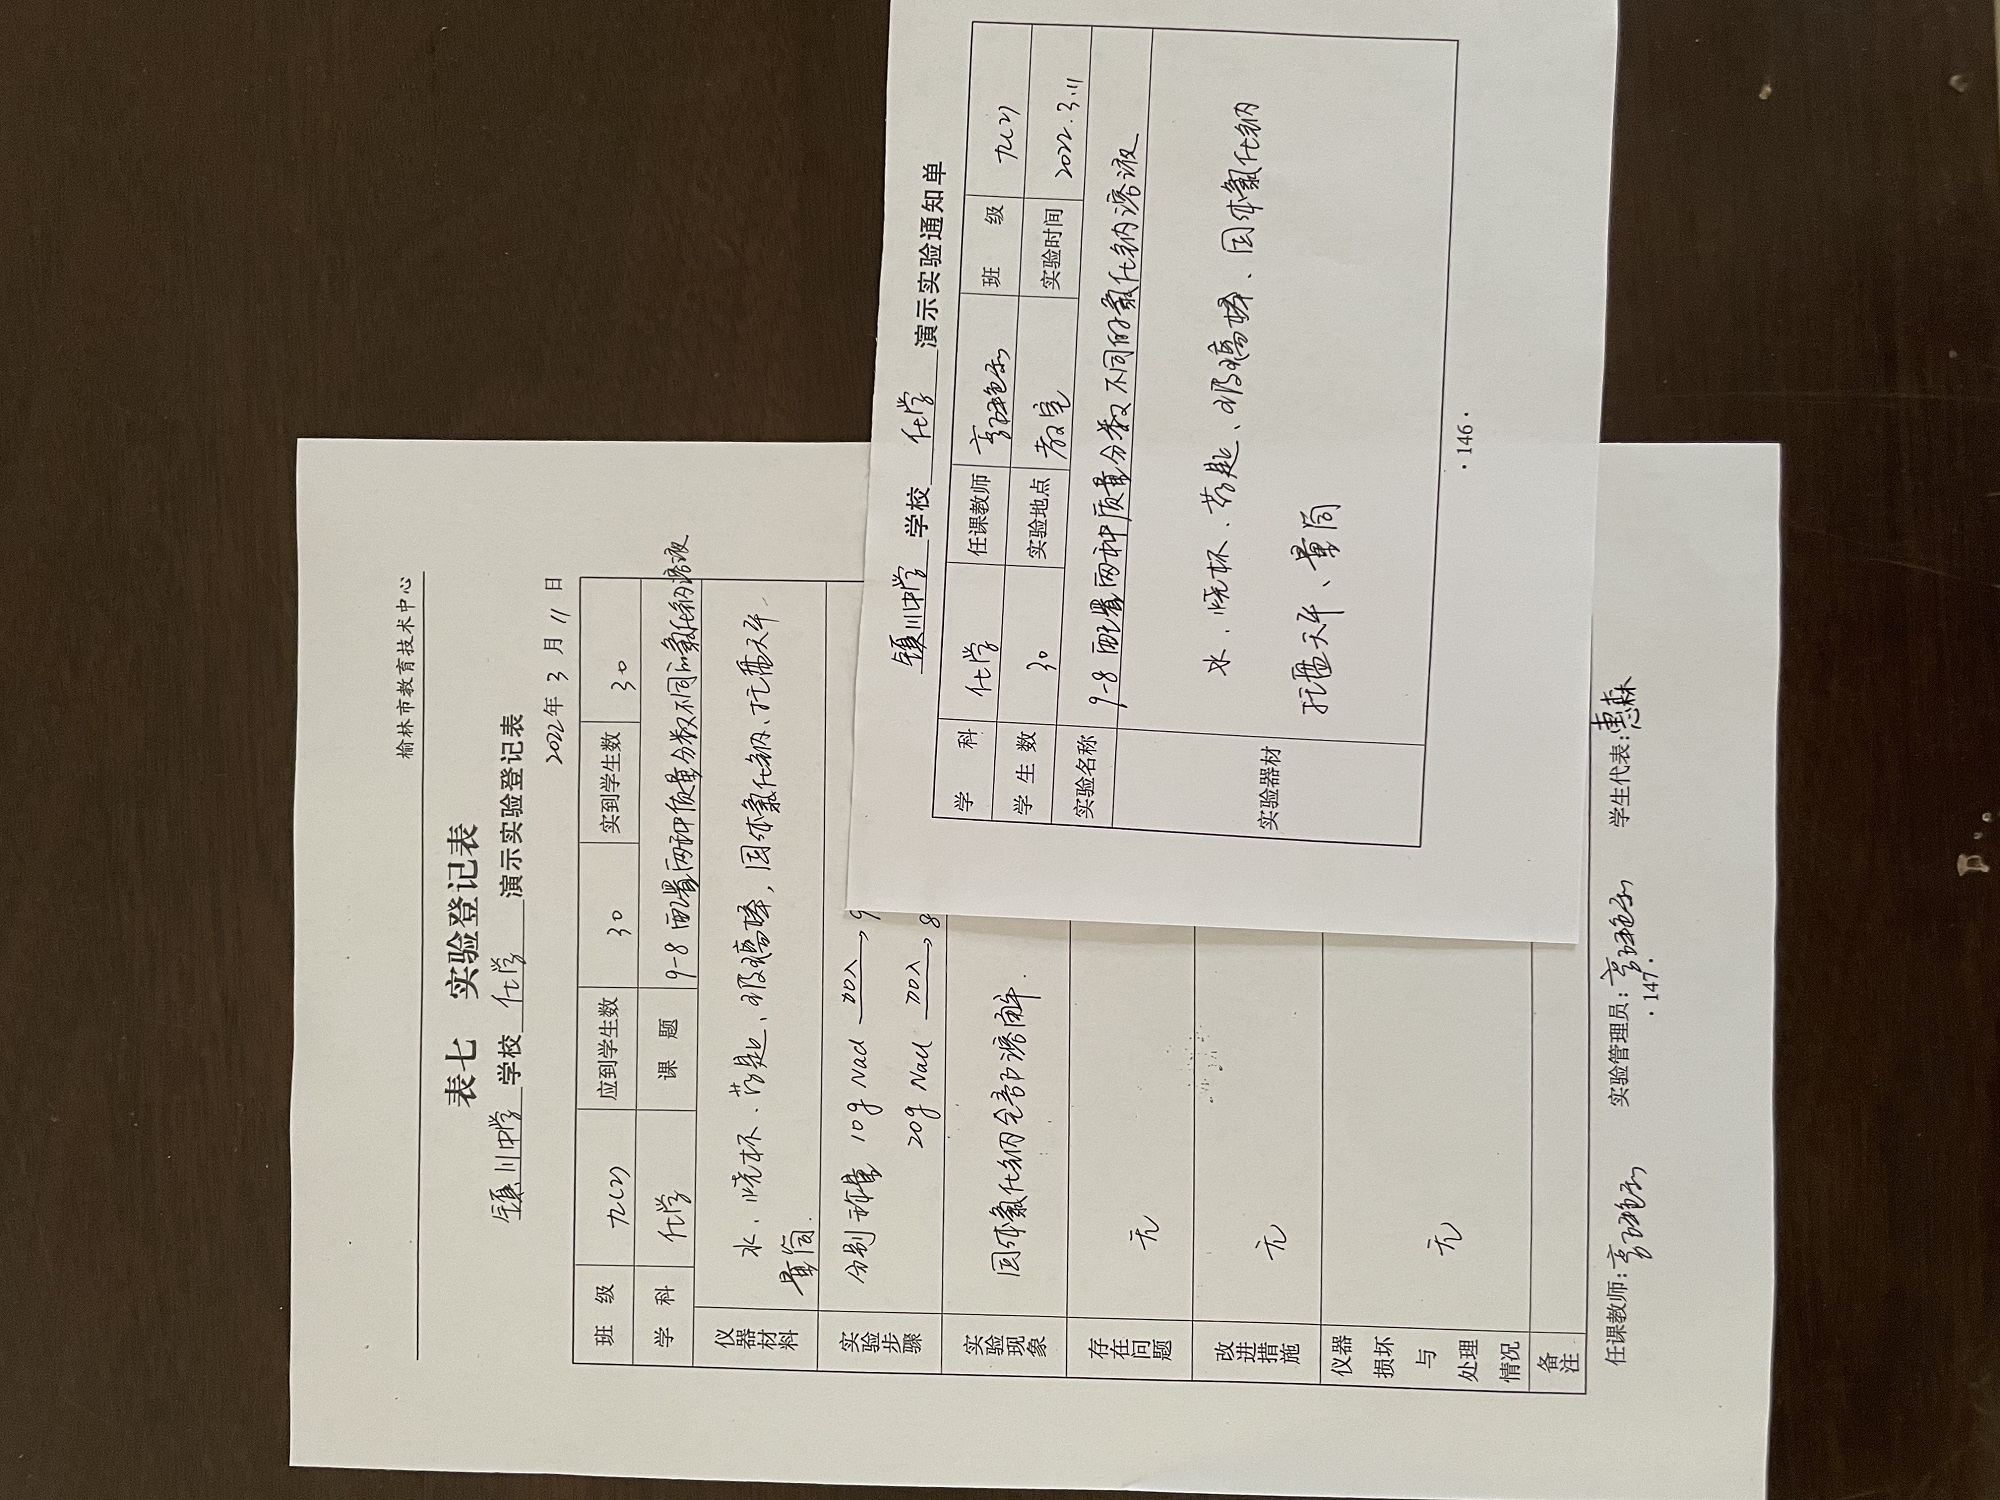 榆林市教育技术中心
表七 实验登记表
镇川中学 学校 化学 演示实验登记表
2022年 3 月 11 日
班 级 九(2) 应到学生数 30 实到学生数 30
学 科 化学 课 题 9-8 配置两种质量分数不同的氯化钠溶液
仪器材料 水、烧杯、药匙、玻璃棒,固体氯化钠、托盘天平、
量筒.
实验步骤 分别称量 10g NaCl 加入→ 9
20g NaCl 加入→ 8
实验现象 固体氯化钠全部溶解.
存在问题 无
改进措施 无
仪器损坏与处理情况 无
备注
任课教师: 实验管理员: 学生代表:惠森
·147·
镇川中学 学校 化学 演示实验通知单
学 科 化学 任课教师 班 级 九(2)
学生数 30 实验地点 教室 实验时间 2022.3.11
实验名称 9-8 配置两种质量分数不同的氯化钠溶液
实验器材 水、烧杯、药匙、玻璃棒、固体氯化钠
托盘天平、量筒
·146·